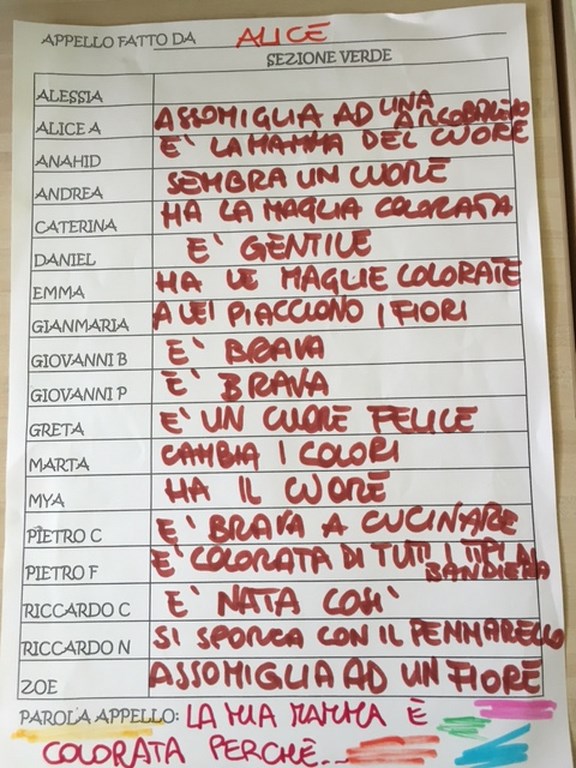 APPELLO FATTO DA ALICE
SEZIONE VERDE
ALESSIA
ALICE A ASSOMIGLIA AD UNA ARCOBALENO
ANAHID E' LA MAMMA DEL CUORE
ANDREA SEMBRA UN CUORE
CATERINA HA LA MAGLIA COLORATA
DANIEL E' GENTILE
EMMA HA LE MAGLIE COLORATE
GIANMARIA A LEI PIACCIONO I FIORI
GIOVANNI B E' BRAVA
GIOVANNI P E' BRAVA
GRETA E' UN CUORE FELICE
MARTA CAMBIA I COLORI
MYA HA IL CUORE
PIETRO C E' BRAVA A CUCINARE
PIETRO F E' COLORATA DI TUTTI I TIPI DI BANDIERA
RICCARDO C E' NATA COSI'
RICCARDO N SI SPORCA CON IL PENNARELLO
ZOE ASSOMIGLIA AD UN FIORE
PAROLA APPELLO: LA MIA MAMMA È
COLORATA PERCHÈ...